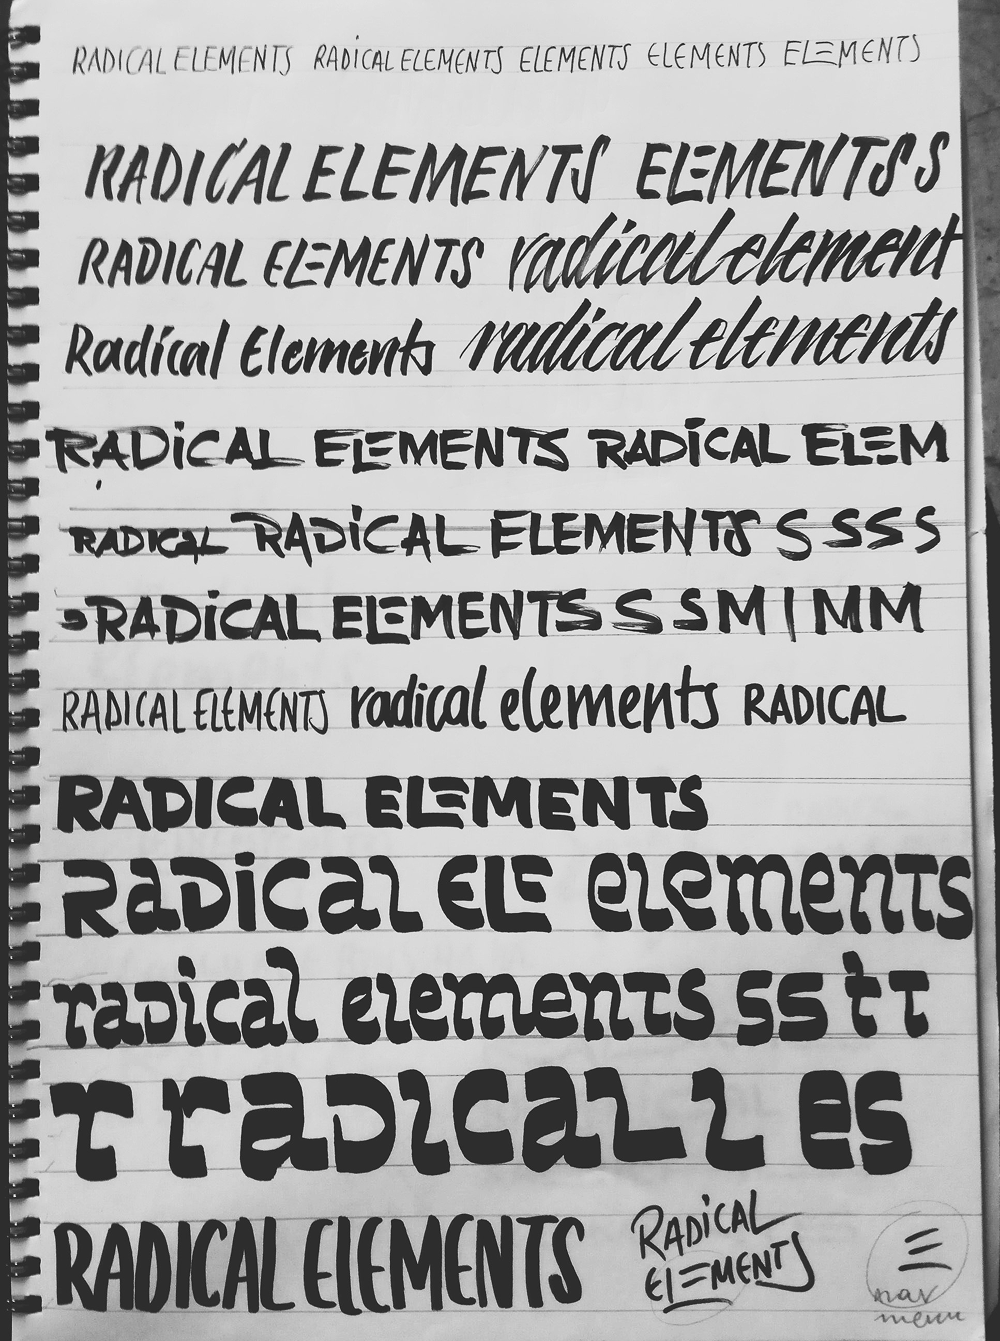 RADICAL ELEMENTS RADICAL ELEMENTS ELEMENTS ELEMENTS ELEMENTS
RADICAL ELEMENTS ELEMENTS S
RADICAL ELEMENTS radical element
Radical Elements radical elements
RADiCAL ELEMENTS RADiCAL ELEM
RADICAL RADiCAL ELEMENTS S S S S
RADiCAL ELEMENTS S S M I M M
RADICAL ELEMENTS radical elements RADICAL
RADICAL ELEMENTS
RaDiCal ELE elements
radical elements s s t t
r r adical l es
RADICAL ELEMENTS
RADiCAL
ELEMENTS
nav
menu